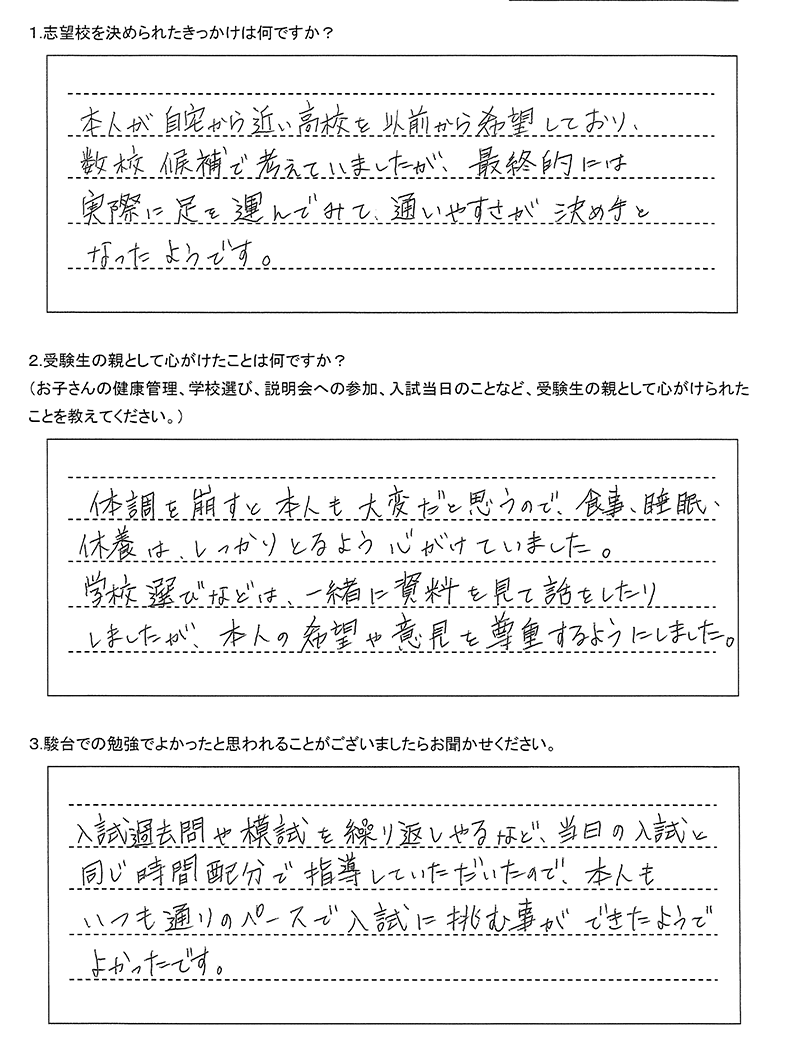 1.志望校を決められたきっかけは何ですか？
本人が自宅から近い高校を以前から希望しており、
数校候補で考えていましたが、最終的には
実際に足を運んでみて、通いやすさが決め手と
なったようです。
2.受験生の親として心がけたことは何ですか？
（お子さんの健康管理、学校選び、説明会への参加、入試当日のことなど、受験生の親として心がけられた
ことを教えてください。）
体調を崩すと本人も大変だと思うので、食事、睡眠、
休養は、しっかりとるよう心がけていました。
学校選びなどは、一緒に資料を見て話をしたり
しましたが、本人の希望や意見を尊重するようにしました。
3.駿台での勉強でよかったと思われることがございましたらお聞かせください。
入試過去問や模試を繰り返しやるなど、当日の入試と
同じ時間配分で指導していただいたので、本人も
いつも通りのペースで入試に挑む事ができたようで
よかったです。